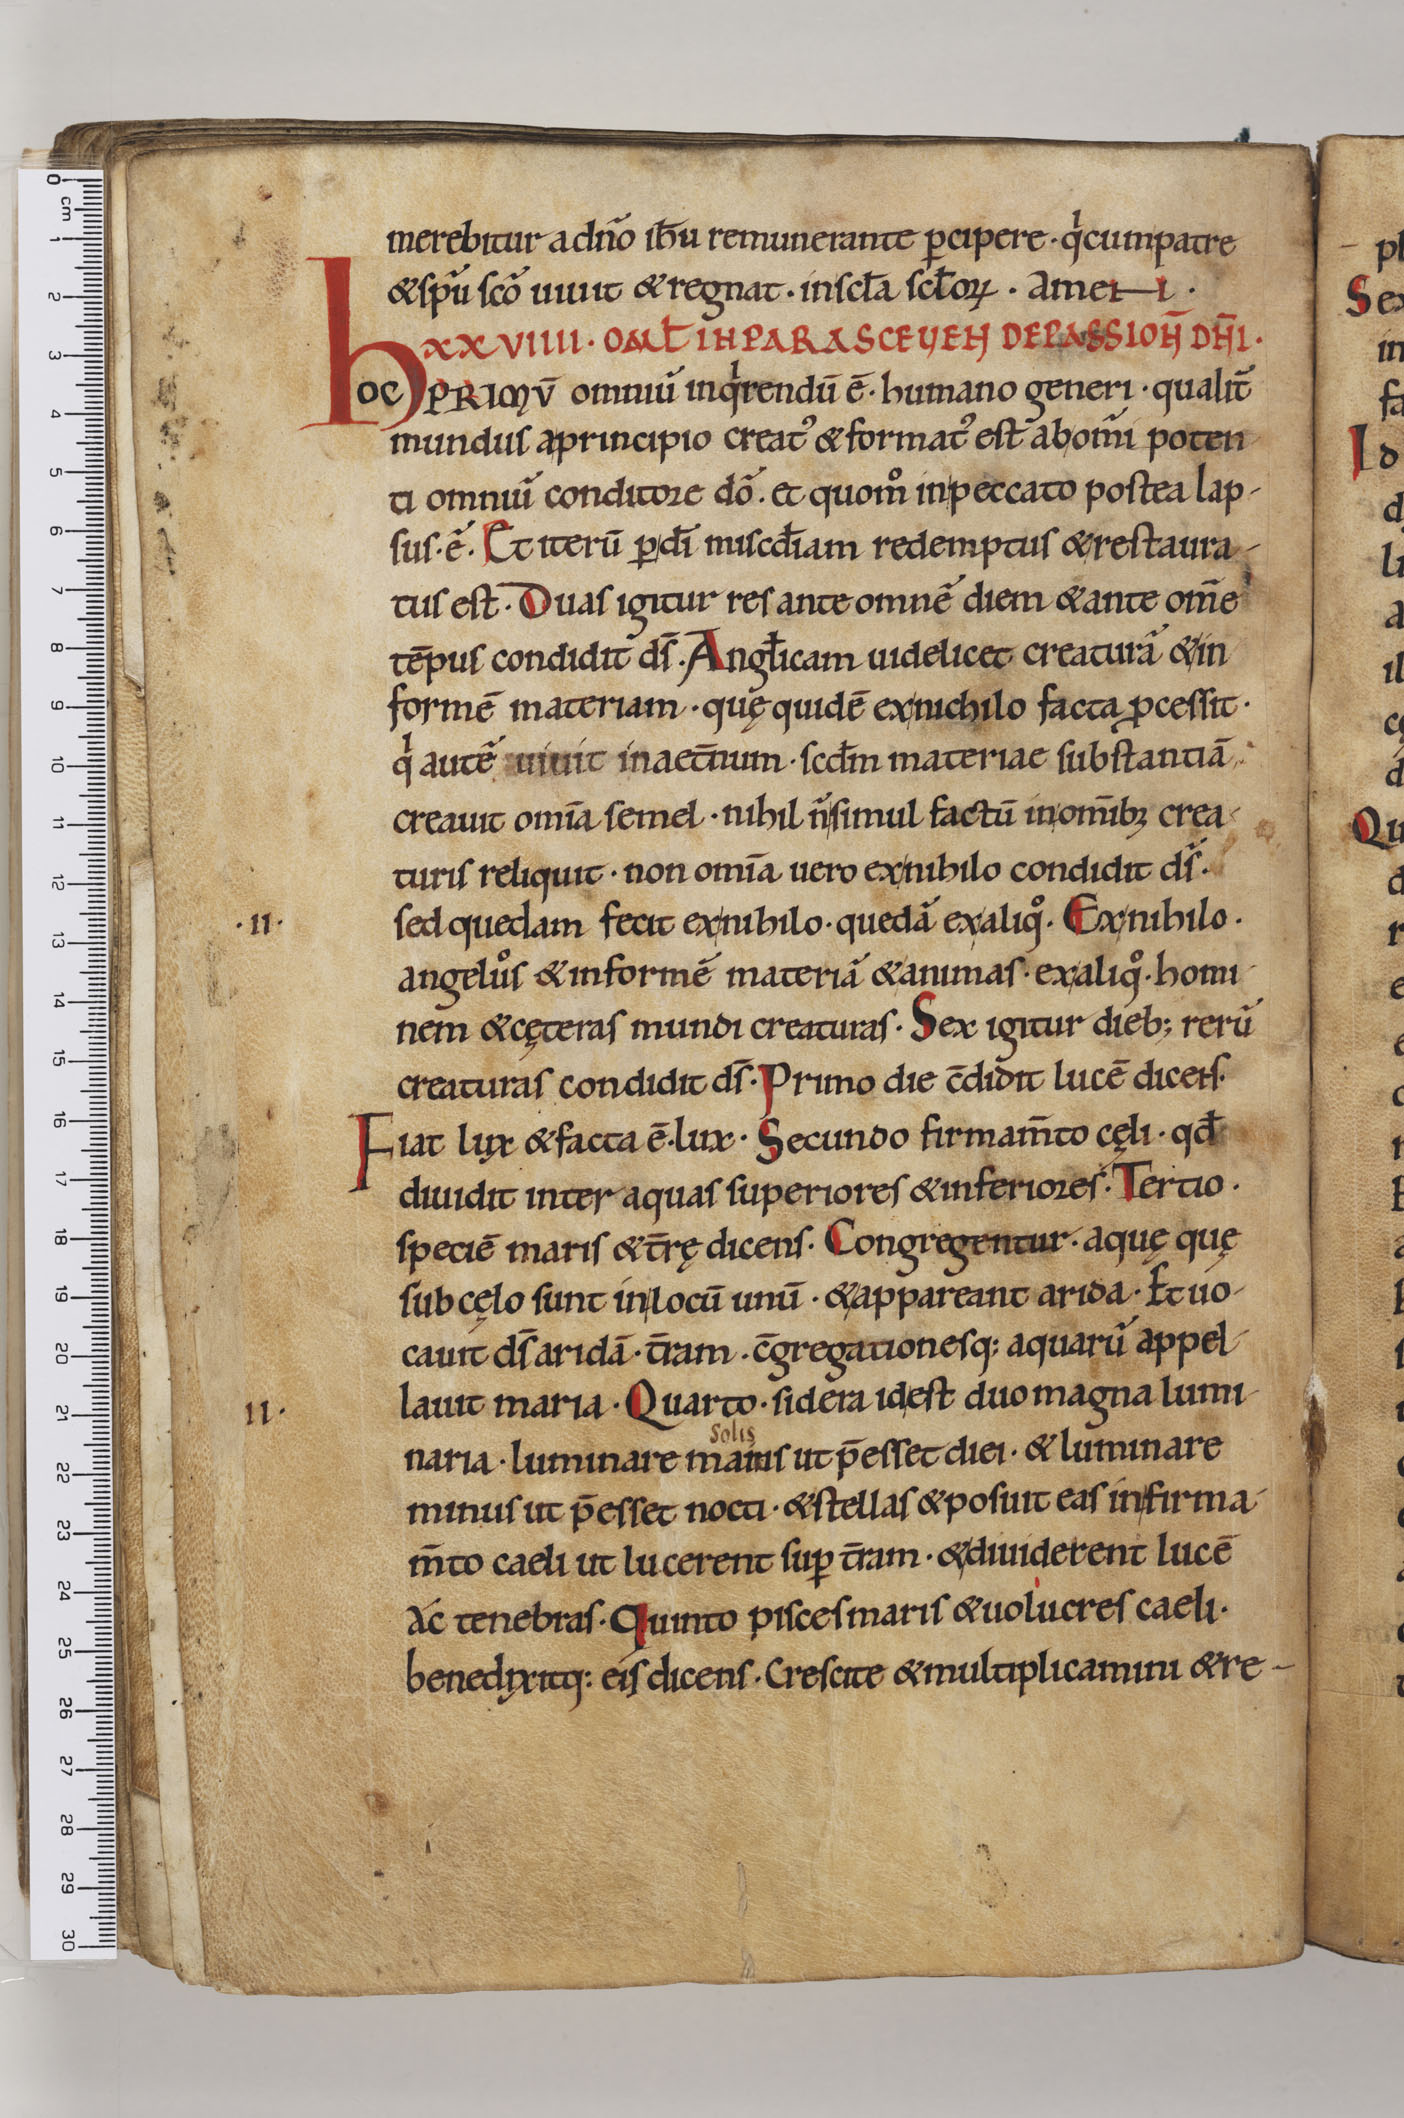 merebitur a dño ihu remunerante p̱cipere · qͥ cum patre
& spu͂ sc͂o uiuit & regnat · in scl̄a scl̄oꝝ · Amen ·
XXVIIII · OML̄ IN PARASCEUEN DE PASSION̄ DN̄I ·
hoc PRIMV̄ omniu͂ inqͥrendū ē · humano generi · qualit̄
mundus a principio creatꝰ & formatꝰ est ab om͂i poten
ti omniu͂ conditore dõ · et quom̊ in peccato postea lap-
sus · ẽ · Et iterū ꝑ dī miscd̄iam redemptus & restaura-
tus est · Duas igitur res ante omnẽ diem & ante om̄e
tēpus condidit ds̄ · Angl̄icam uidelicet creaturã & in
formē materiam · quę quidē ex nichilo facta ꝓcessit ·
qͥ autẽ uiuit in aet̄num · scd̄m materiae substantiā ·
creauit om̄ia semel · nihil n̄ simul factū in om̄ibꝫ crea-
turis reliquit · non om̄ia uero ex nihilo condidit ds̄ ·
· II ·
sed quedam fecit ex nihilo · quedã ex aliqͦ · Ex nihilo ·
angeloͧs & informẽ materiã & animas · ex aliqͦ · homi-
nem & cęteras mundi creaturas · Sex igitur dieb; reru͂
creaturas condidit ds̄ · Primo die c̄didit lucē dicens ·
Fiat lux & facta ē · lux · Secundo firmam̄to cęli · qđ
diuidit inter aquas superiores & inferiores · Tertio ·
speciē maris & t̄rę dicens · Congregentur · aquę quę
sub cęlo sunt in locū unū · & appareant arida · Et uo-
cauit ds̄ aridā · t̄ram · c̄gregationesq; aquaru͂ appel-
II ·
lauit maria · Quarto · sidera id est duo magna lumi-
solis
naria · luminare maius ut p̄esset diei · & luminare
minus ut p̄esset nocti · & stellas & posuit eas in firma-
m̄to caeli ut lucerent sup̱ t̄ram · & diuiderent lucē
ac tenebras · Quinto pisces maris & uolucres caeli ·
benedixitq; eis dicens · Crescite & multiplicamini & re-